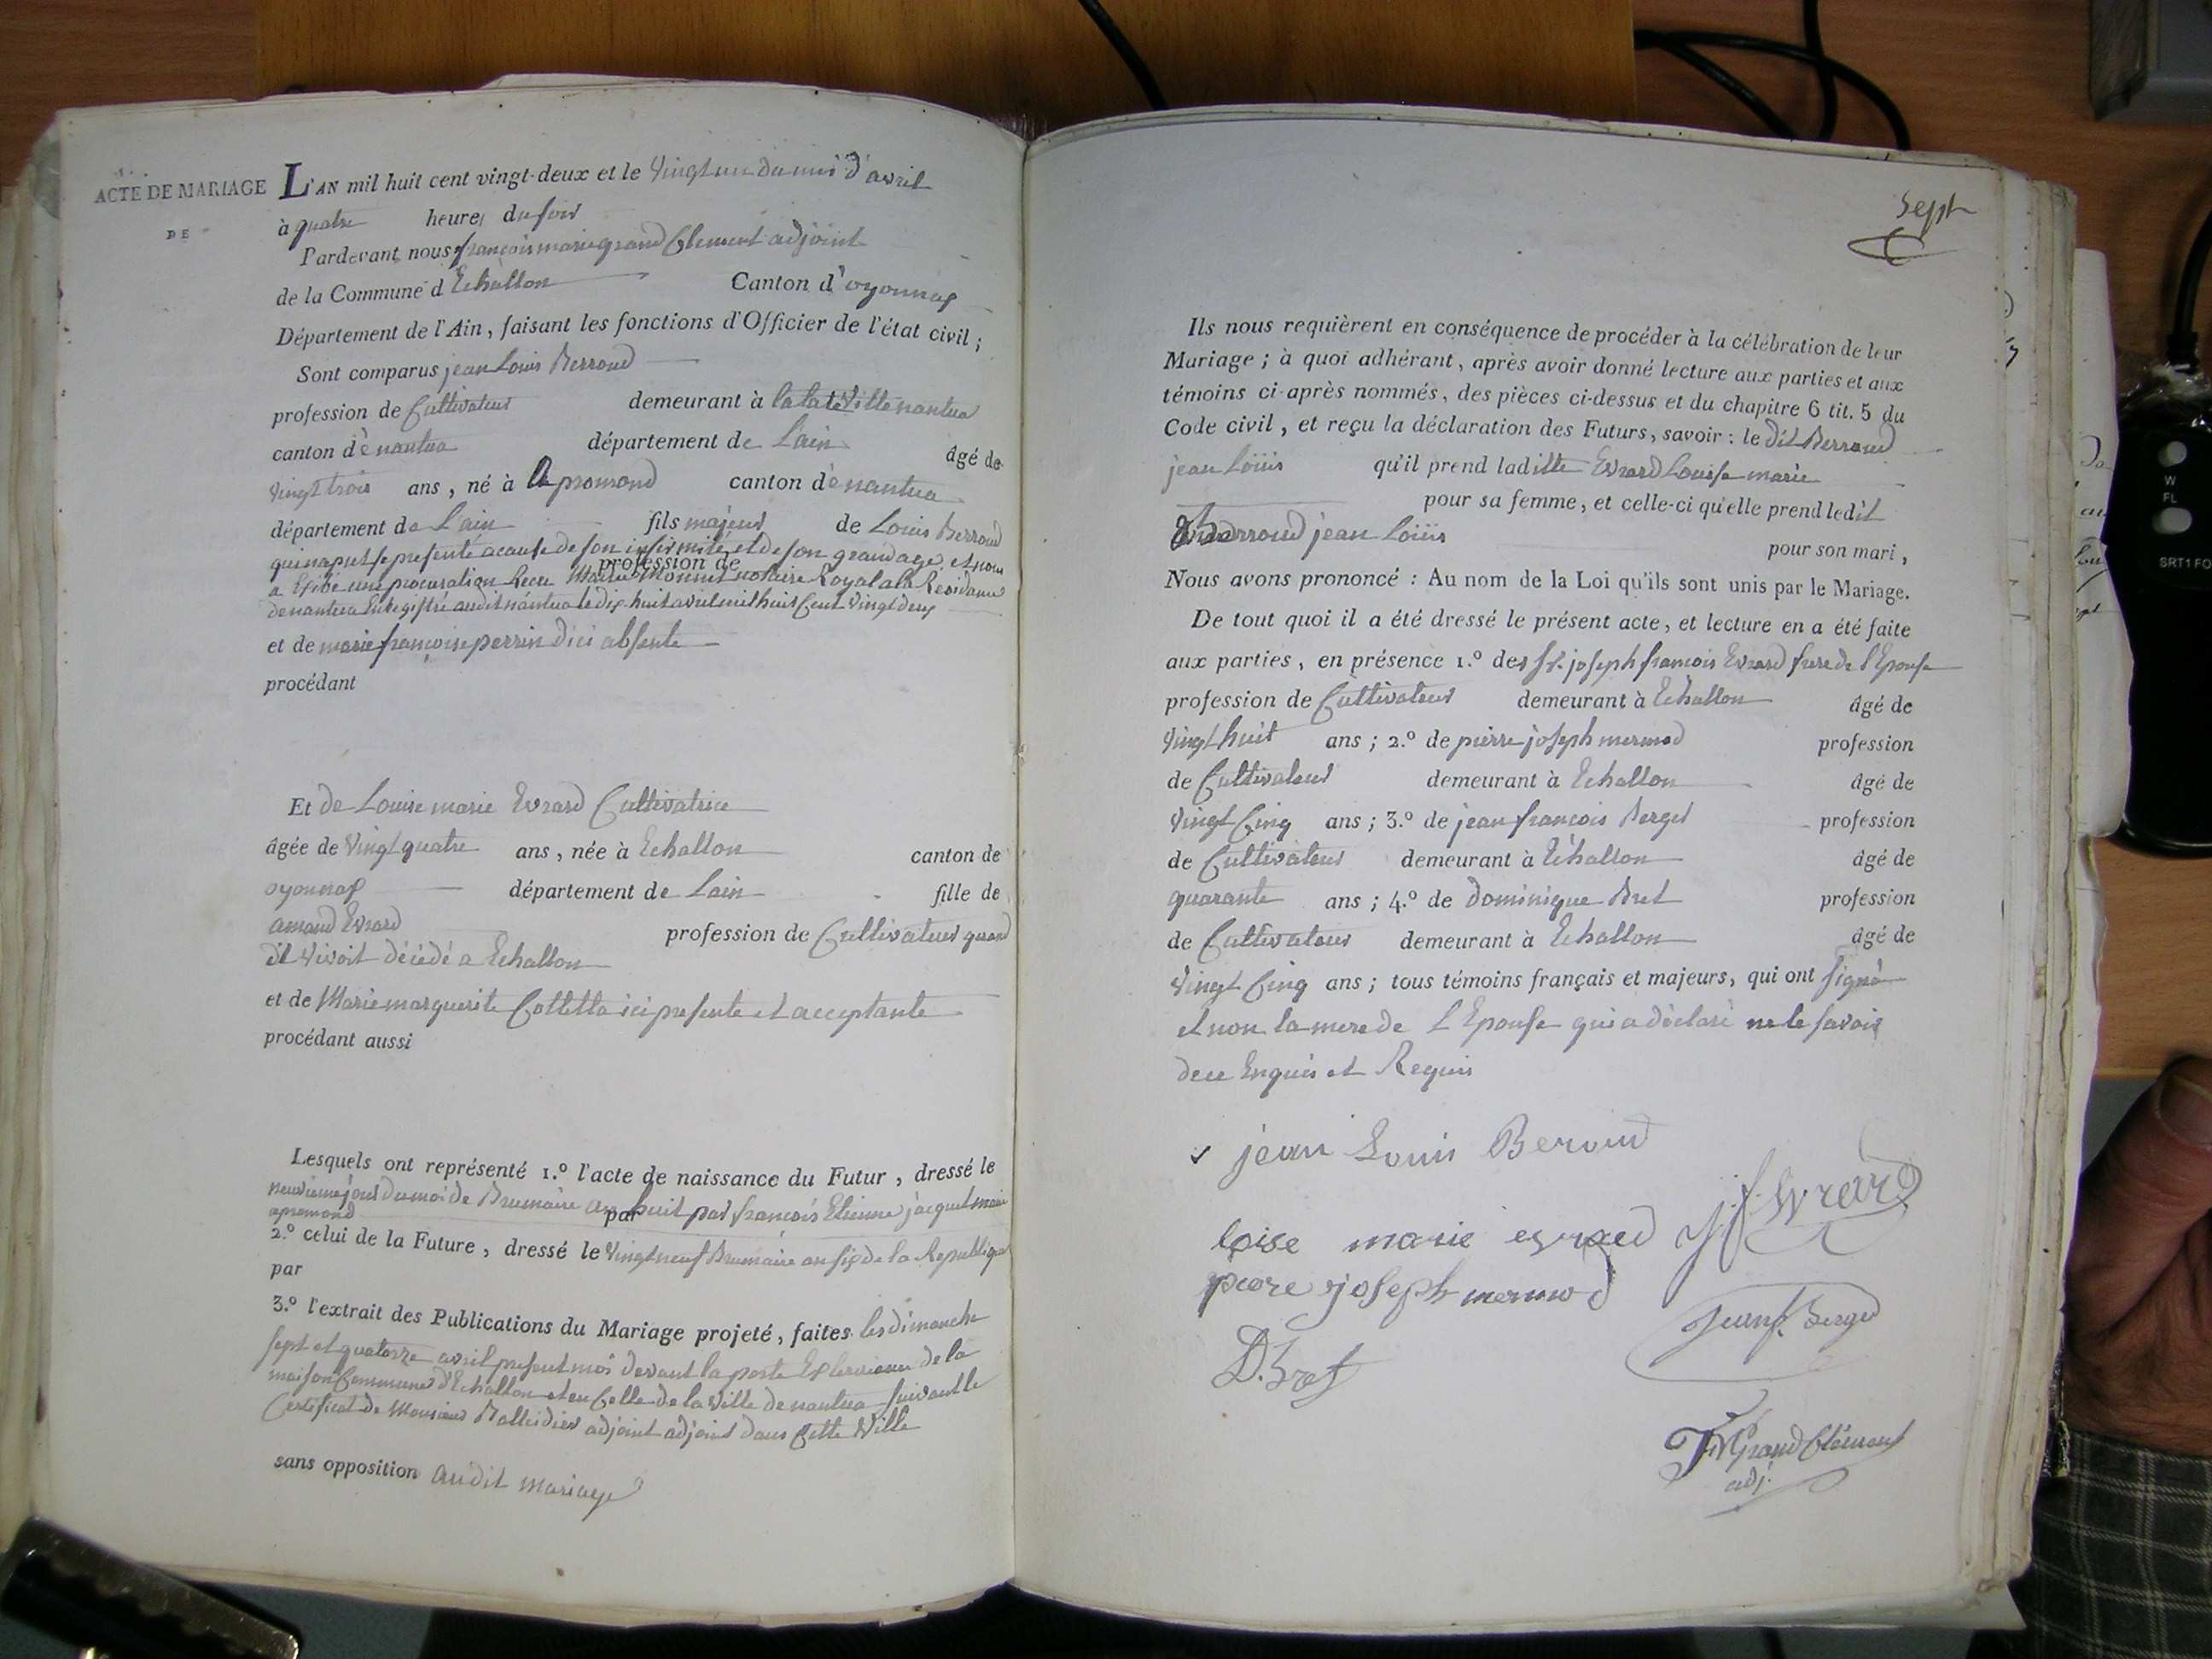 ACTE DE MARIAGE
DE
L'AN mil huit cent vingt-deux et le vingt un du moi d'avril
à quatre heures du soir
Pardevant nous françois marie grand Clement adjoint
de la Commune d'Echallon Canton d'oyonnax
Département de l'Ain, faisant les fonctions d'Officier de l'état civil;
Sont comparus jean Louis Berroud
profession de Cultivateur demeurant à la ville nantua
canton de nantua département de Lain âgé de
vingt trois ans, né à apromond canton de nantua
département de Lain fils majeur de Louis Berroud
qui na put se presenté a cause de son infirmité et de son grand age, et nous
profession de
a Exibé une procuration Recu Maitre Monnet notaire Royal a la Residance
de nantua Enregistré audit nantua le dix huit avril mil huit Cent vingt deux
et de marie françoise perrin dici absente
procédant
Et de Louise marie Evrard Cultivatrice
âgée de vingt quatre ans, née à Echallon canton de
oyonnax département de Lain fille de
amand Evrard profession de Cultivateur quand
il vivoit décédé a Echallon
et de Marie marguerite Colletta ici presente et acceptante
procédant aussi
Lesquels ont représenté 1.º l'acte de naissance du Futur, dressé le
neuvieme jour du moi de Brumaire an huit par françois Etienne jacquet maire
apromond par
2.º celui de la Future, dressé le vingt neuf Brumaire an six de la Republique
par
3.º l'extrait des Publications du Mariage projeté, faites les dimanche
sept et quatorze avril present moi devant la porte Exterieure de la
maison Commune d'Echallon et en Celle de la ville de nantua suivant le
Certificat de Monsieur adjoint adjoint dans Cette ville
sans opposition audit mariage
Sept
Ils nous requièrent en conséquence de procéder à la célébration de leur
Mariage; à quoi adhérant, après avoir donné lecture aux parties et aux
témoins ci-après nommés, des pièces ci-dessus et du chapitre 6 tit. 5 du
Code civil, et reçu la déclaration des Futurs, savoir: le dit Berroud
jean Loüis qu'il prend laditte Evrard Louise marie
pour sa femme, et celle-ci qu'elle prend ledit
Berroud jean Loüis
pour son mari,
Nous avons prononcé: Au nom de la Loi qu'ils sont unis par le Mariage.
De tout quoi il a été dressé le présent acte, et lecture en a été faite
aux parties, en présence 1.º des Sr. joseph francois Evrard frere de l'Epouse
profession de Cultivateur demeurant à Echallon âgé de
vingt huit ans; 2.º de pierre joseph mermod profession
de Cultivateur demeurant à Echallon âgé de
vingt Cinq ans; 3.º de jean francois Berger profession
de Cultivateur demeurant à Echallon âgé de
quarante ans; 4.º de Dominique Bret profession
de Cultivateur demeurant à Echallon âgé de
vingt Cinq ans; tous témoins français et majeurs, qui ont signé
et non la mere de l'Epouse qui a déclaré ne le savoir
de ce Enquis et Requis
jean Louis Beroud
j f Evrard
loise marie evraed
piere joseph mermod
Jean f. Berger
D. Bret
FM Grand Clément
adj.
W
FL
SRT1 FO